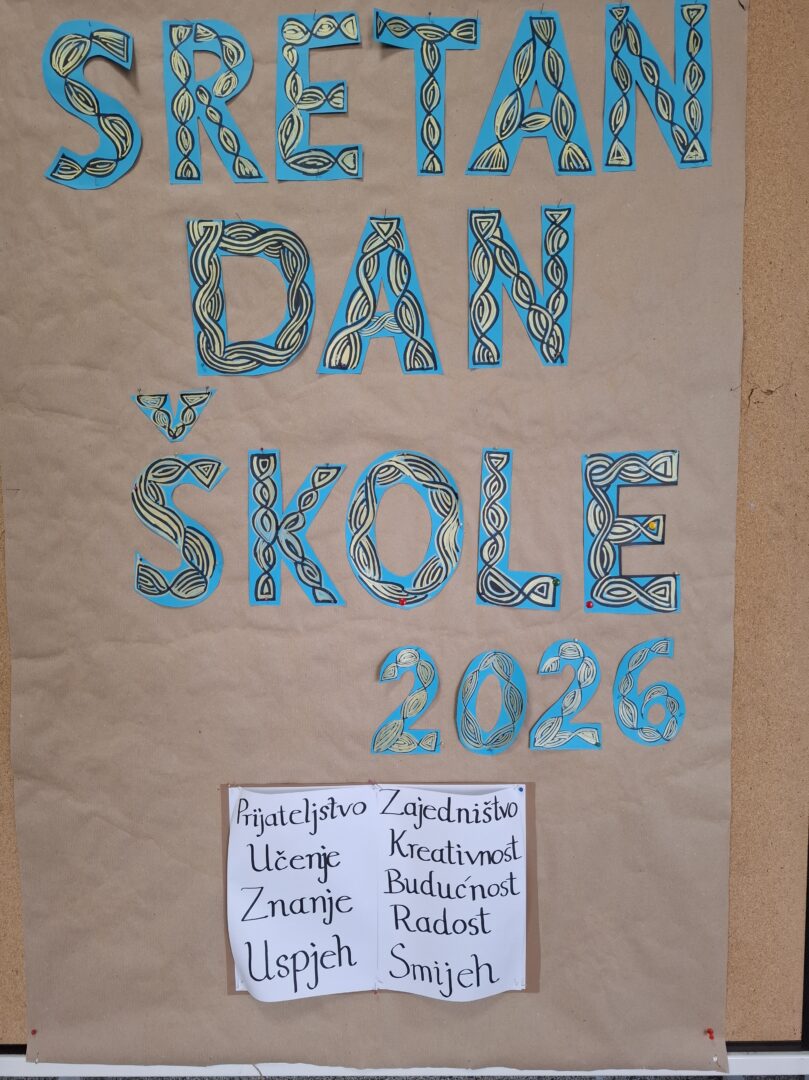 SRETAN
DAN
ŠKOLE
2026
Prijateljstvo
Učenje
Znanje
Uspjeh
Zajedništvo
Kreativnost
Budućnost
Radost
Smijeh